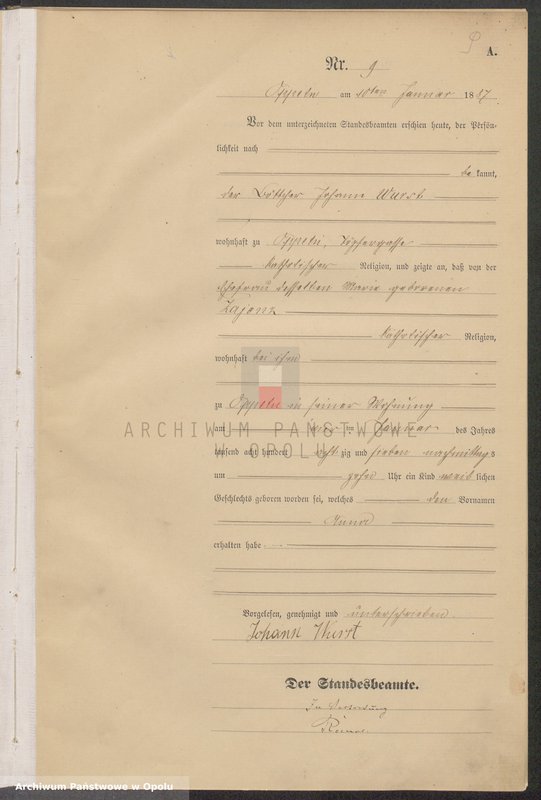 A.
Nr. 9
Oppeln am 10ten Januar 1887.
Vor dem unterzeichneten Standesbeamten erschien heute, der Persön-
lichkeit nach
be kannt,
der Böttcher Johann Wurst
wohnhaft zu Oppeln, Töpfergasse
katholischer Religion, und zeigte an, daß von der
Ehefrau desselben Marie geborenen
Zajonz
katholischer Religion,
wohnhaft bei ihm
zu Oppeln in seiner Wohnung
am Januar des Jahres
tausend acht hundert acht zig und sieben nachmittags
um zehn Uhr ein Kind weib lichen
Geschlechts geboren worden sei, welches den Vornamen
erhalten habe
Vorgelesen, genehmigt und unterschrieben.
Johann Wurst
Der Standesbeamte.
In Vertretung
ARCHIWUM PAŃSTWOWE
W OPOLU
Archiwum Państwowe w Opolu